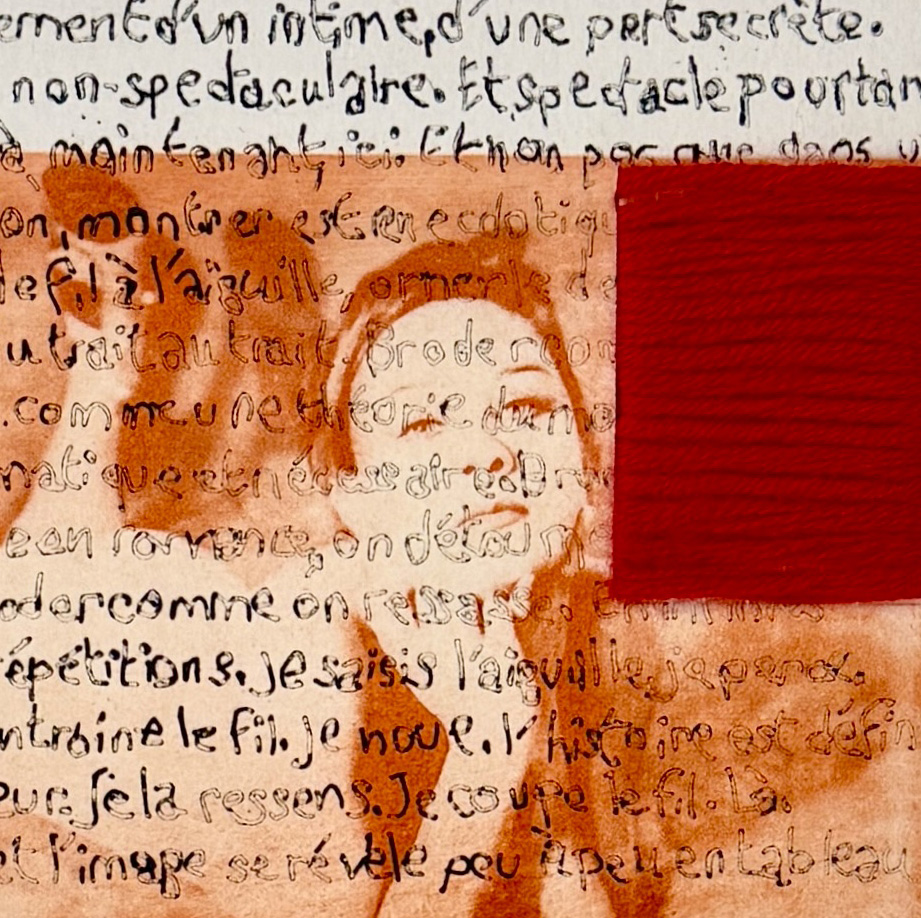 ement d'un intime, d'une part secrète.
non-spectaculaire. Et spectacle pourtan
à, maintenant, ici. Et non pas que dans
on, montrer est anecdotiqu
le fil à l'aiguille, orner le de
u trait au trait. Broder com
comme une théorie du mo
matique et nécessaire. Bro
e en romance, on détourne
oder comme on ressasse.
répétitions. Je saisis l'aiguille, je perce.
ntraîne le fil. Je noue. L'histoire est défin
eur. Je la ressens. Je coupe le fil. Là.
et l'image se révèle peu à peu en tableau